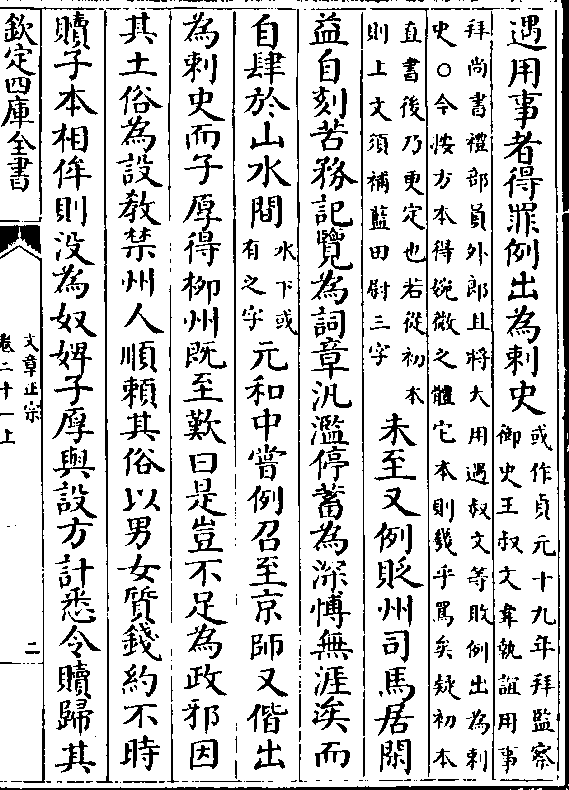 遇用事者得罪例出為刺史
或作貞元十九年拜監察
御史王叔文韋執誼用事
拜尚書禮部員外郎且將大用遇叔文等敗例出為刺
史○今按方本得婉微之體它本則幾乎罵矣疑初本
直書後乃更定也若從初本
則上文須補藍田尉三字
未至又例貶州司馬居閑
益自刻苦務記覽為詞章汎濫停蓄為深博無涯涘而
自肆於山水間
水下或
有之字
元和中嘗例召至京師又偕出
為刺史而子厚得柳州既至歎曰是豈不足為政邪因
其土俗為設教禁州人順賴其俗以男女質錢約不時
贖子本相侔則没為奴婢子厚與設方計悉令贖歸其
欽定四庫全書
文章正宗
卷二十一上
二